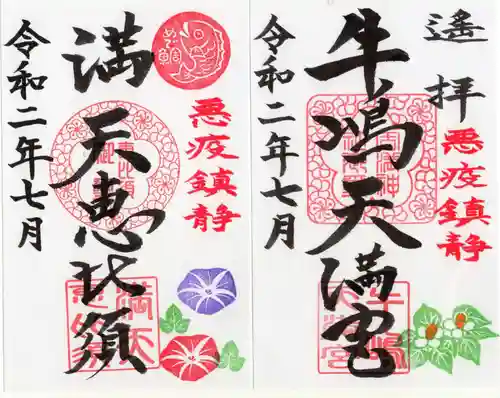 遙拝
悪疫鎮静
牛嶋天満宮
令和二年七月
悪疫鎮静
満天恵比須
令和二年七月